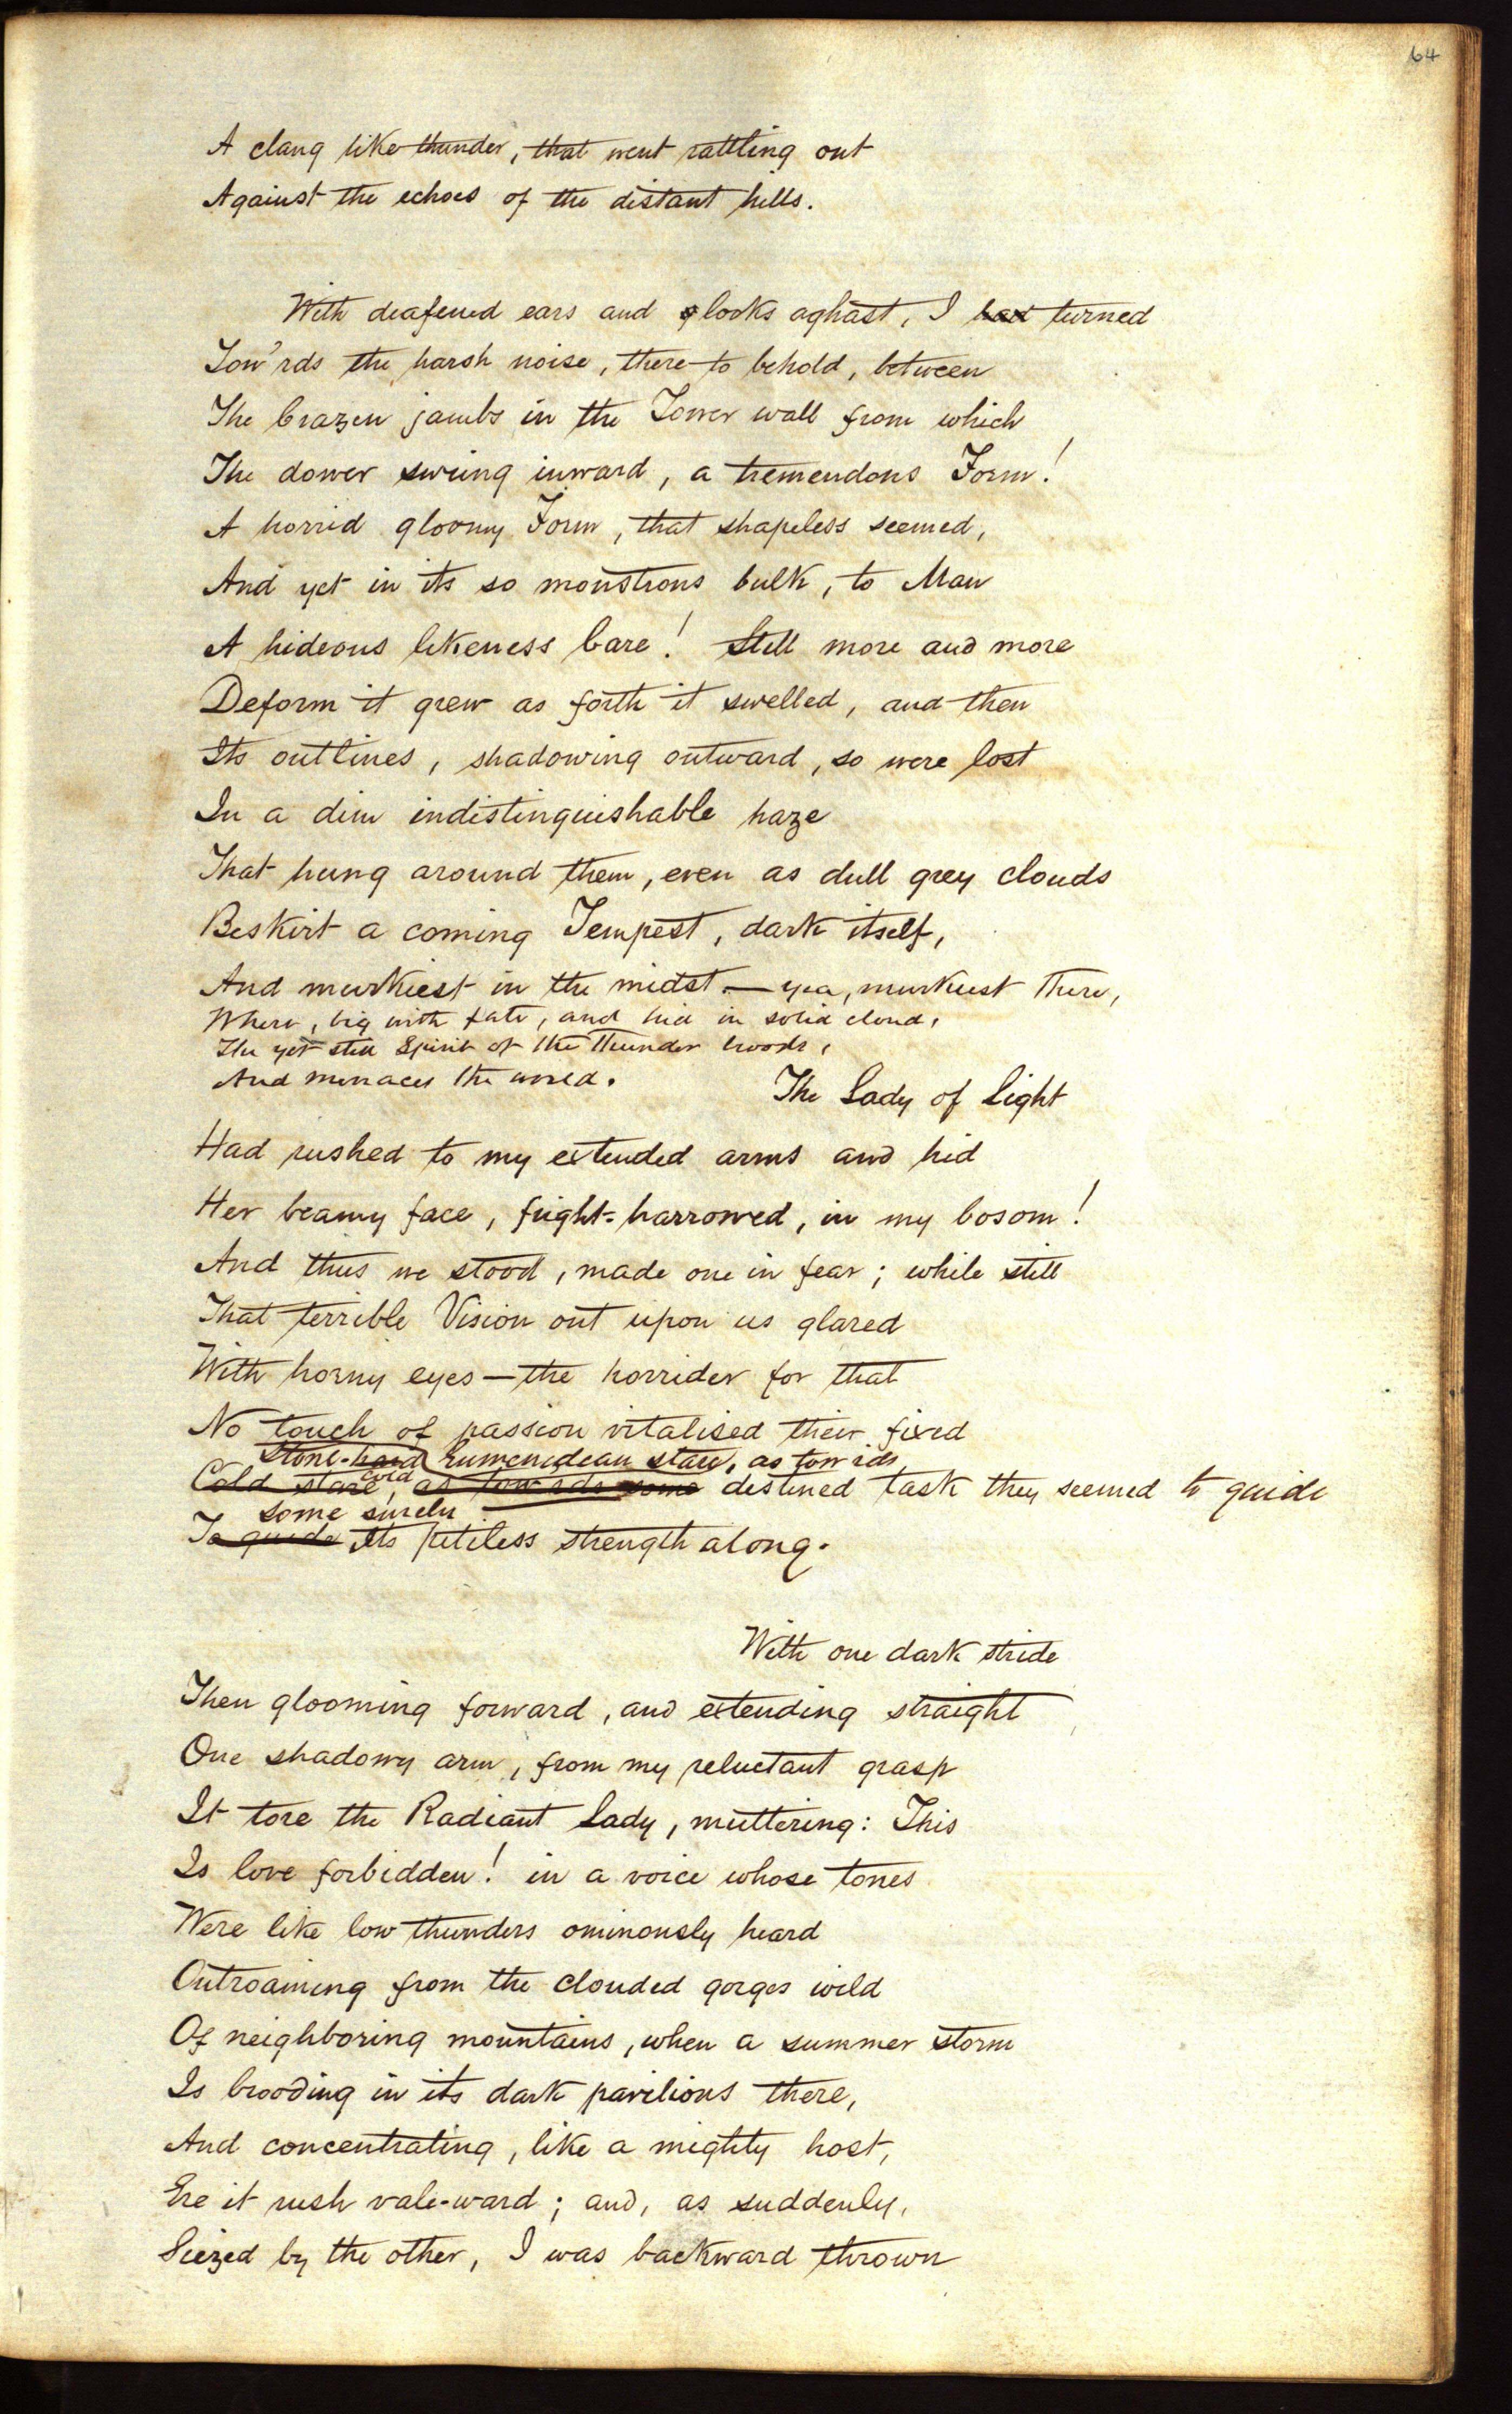 64
A clang like thunder, that went rattling out
Against the echoes of the distant hills.
With deafened ears and looks aghast, I had turned
Tow'rds the harsh noise, there to behold, between
The brazen jambs in the Tower wall from which
The dower swung inward, a tremendous Form!
A horrid gloomy Form, that shapeless seemed,
And yet in its so monstrous bulk, to Man
A hideous likeness bare! Still more and more
Deform it grew as forth it swelled, and then
Its outlines, shadowing outward, so were lost
In a dim indistinguishable haze
That hung around them, even as dull grey clouds
Beskirt a coming Tempest, dark itself,
And murkiest in the midst — yea, murkiest there,
Where, big with fate, and hid in solid cloud,
The yet still Spirit of the Thunder broods,
And menaces the world.
The Lady of Light
Had rushed to my extended arms and hid
Her beamy face, fright-harrowed, in my bosom!
And thus we stood, made one in fear; while still
That terrible Vision out upon us glared
With horny eyes — the horrider for that
No touch of passion vitalised their fixed
Stone-hard Eumenidean stare, as tow'rds
Cold stare, cold as tow'rds some destined task they seemed to guide
some surely
To guide Its pitiless strength along.
With one dark stride
Then glooming forward, and extending straight
One shadowy arm, from my reluctant grasp
It tore the Radiant Lady, muttering: This
Is love forbidden! in a voice whose tones
Were like low thunders ominously heard
Outroaming from the clouded gorges wild
Of neighboring mountains, when a summer storm
Is brooding in its dark pavilions there,
And concentrating, like a mighty host,
Ere it rush vale-ward; and, as suddenly,
Siezed by the other, I was backward thrown